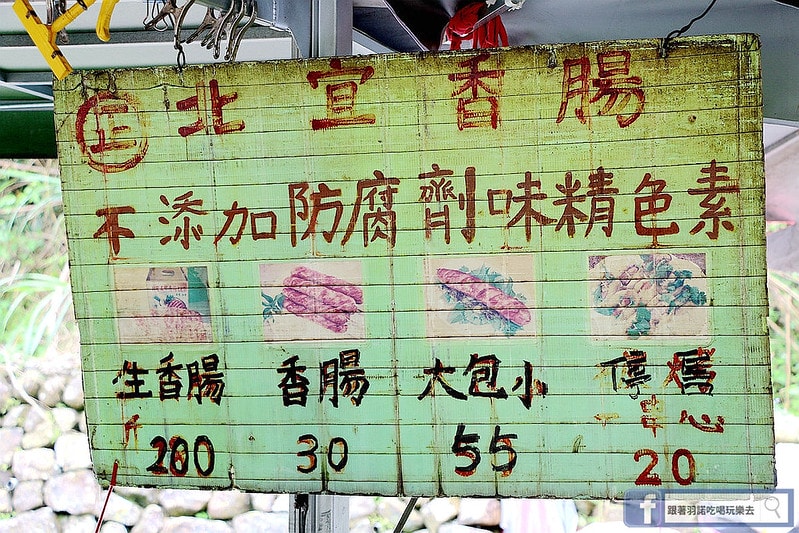 正 北宣香腸
不添加防腐劑味精色素
生香腸 香腸 大包小
斤 心
200 30 55 20
跟著羽諾吃喝玩樂去